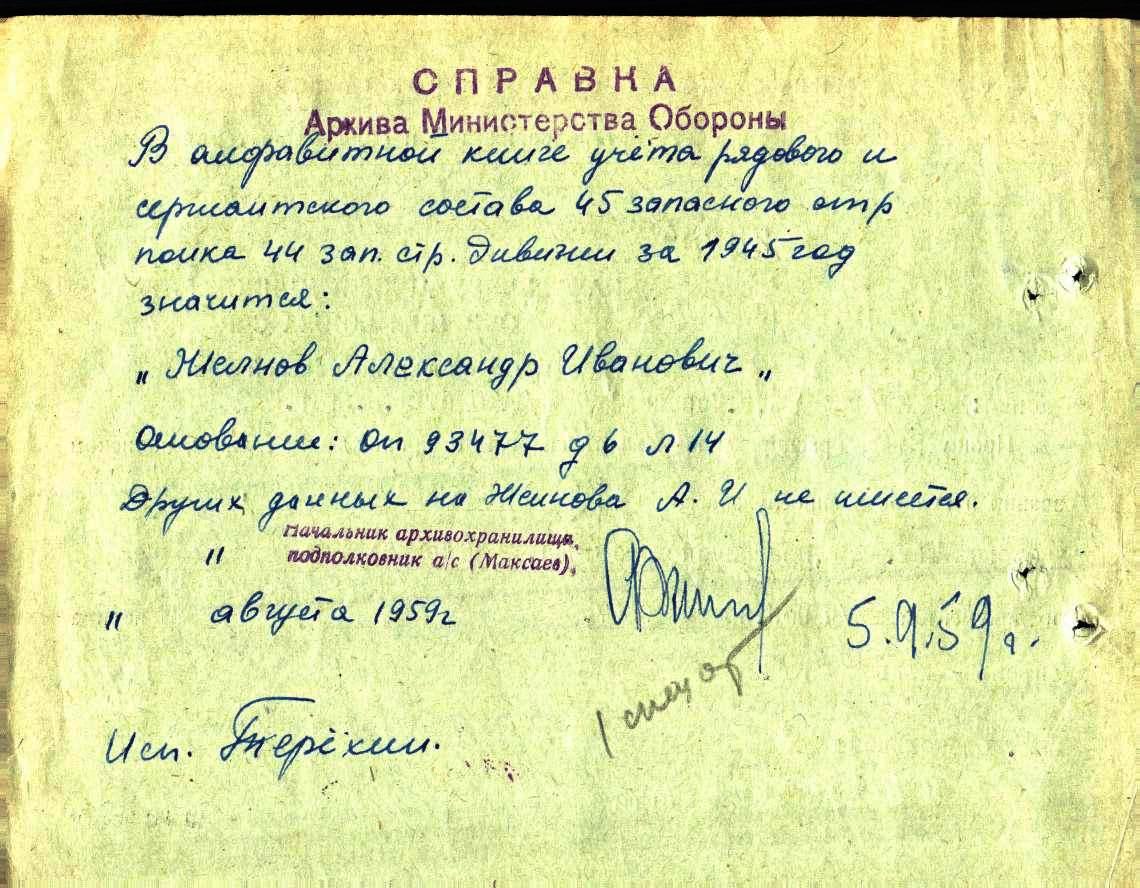 СПРАВКА
Архива Министерства Обороны
В алфавитной книге учёта рядового и
сержантского состава 45 запасного стр
полка 44 зап. стр. дивизии за 1945 год
значится:
„ Желнов Александр Иванович „
Основание: оп 93477 д 6 л 14
Других данных на Желнова А. И не имеется.
Начальник архивохранилища,
" подполковник а/с (Максаев),
" августа 1959г
5.9.59г.
Исп. Терёхин.